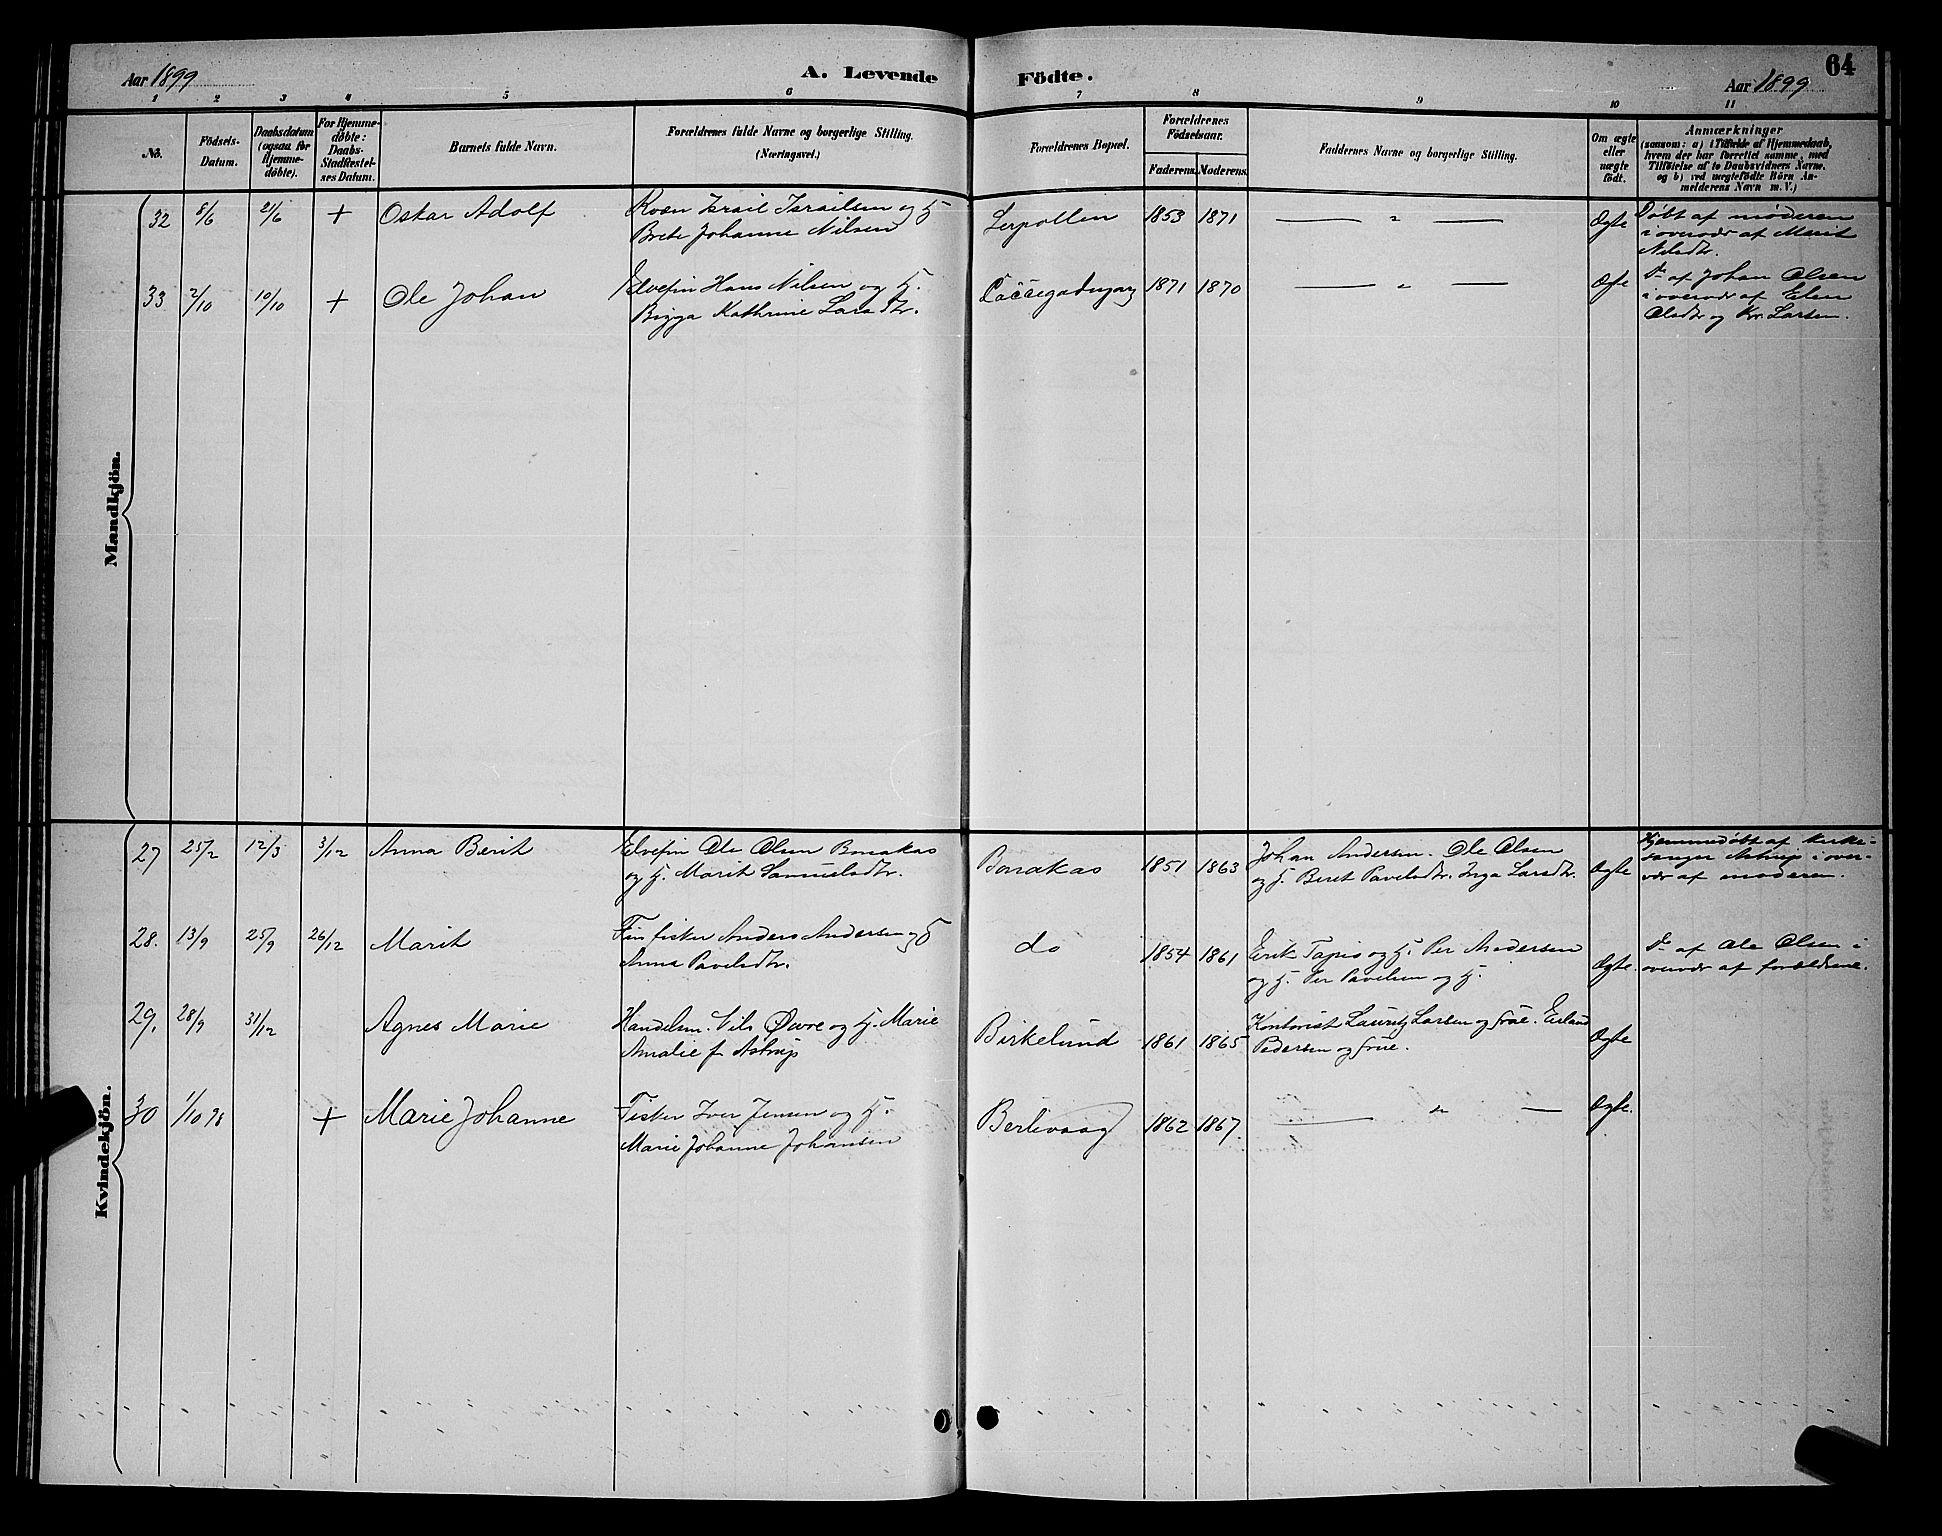 64
Aar 1899
A. Levende Födte.
Aar 1899
1 2 3 4 5 6 7 8 9 10 11
No.
Födsels-Datum.
Daabsdatum (ogsaa for Hjemme-döbte).
For Hjemme-döbte: Daabs-Stadfæstel-ses Datum.
Barnets fulde Navn.
Forældrenes fulde Navne og borgerlige Stilling. (Næringsvei.)
Forældrenes Bopæl.
Forældrenes Födselsaar.
Faderens. Moderens.
Faddernes Navne og borgerlige Stilling.
Om ægte eller uægte födt.
Anmærkninger
(saasom: a) i Tilfælde af Hjemmedaab, hvem der har forrettet samme, med Tilföielse af to Daabsvidners Navne, og b) ved uægtefödte Börn An-melderens Navn m. V.)
Mandkjön.
32 8/6 21/6 + Oskar Adolf
Kvæn Israil Israilsen og H
Brete Johanne Nilsen
Lerpollen 1853 1871 — " — Ægte
Døbt af moderen
i overvær af Marit
Nilsdtr.
33 2/10 10/10 + Ole Johan
Elvefin Hans Nilsen og H.
Bigga Kathrine Larsdtr.
1871 1870 — " — Ægte
Do af Johan Olsen
i overvær af Elen
Olsdtr og Kr. Larsen.
Kvindekjön.
27 25/2 12/3 3/12 Anna Berit
Elvefin Ole Olsen Bonakas
og H. Marit Samuelsdtr.
Bonakas 1851 1863
Johan Andersen. Ole Olsen
og H. Beret Pavelsdtr. Inga Larsdtr.
Ægte
Hjemmedøbt af Kirke-
sanger Astrup i over-
vær af moderen.
28. 13/9 25/9 26/12 Marit
Fin fisker Anders Andersen og H
Anna Pavelsdtr.
do 1854 1861
Erik Tapio og H. Per Andersen
og H. Per Pavelsen og H.
Ægte.
Do af Ole Olsen i
overvær af forældrene.
29. 28/9 31/12 Agnes Marie
Handelsm. Nils Øvre og H. Marie
Amalie f. Astrup
Birkelund 1861 1865
Kontorist Lauritz Larsen og frue. Erland
Pedersen og frue.
Ægte
30 1/10 98 + Marie Johanne
Fisker Iver Jensen og H.
Marie Johanne Johansen
Berlevaag 1862 1867. — " — Ægte.